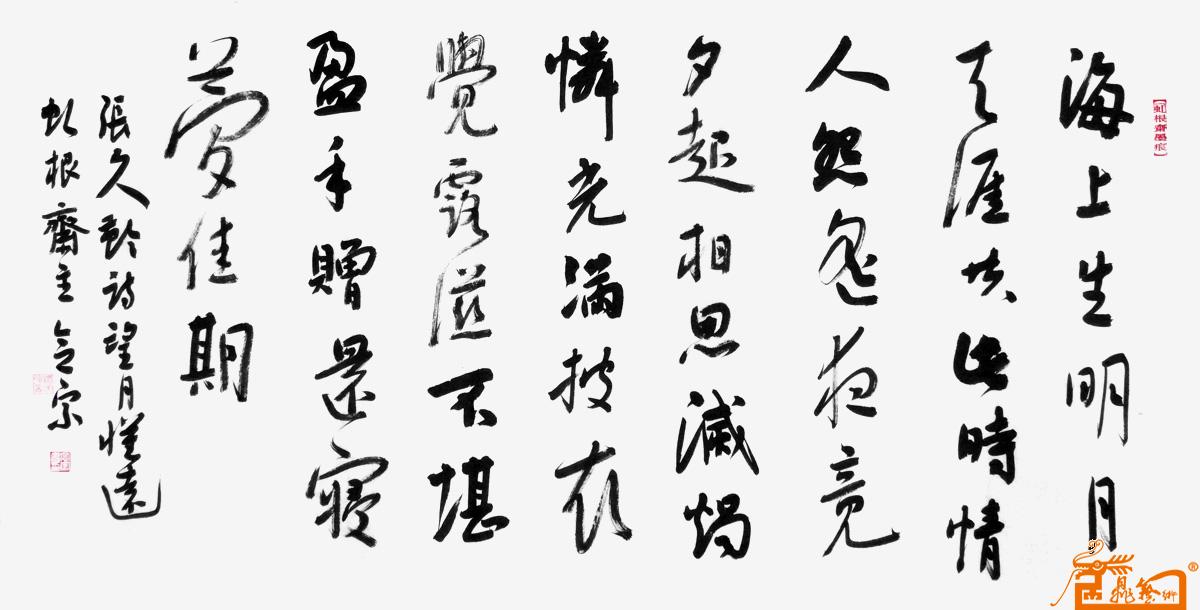 【虬根齋墨痕】
海上生明月
天涯共此時情
人怨遙夜竟
夕起相思滅燭
憐光滿披衣
覺露滋不堪
盈手贈還寢
夢佳期
張久齡詩望月懷遠
虬根齋主宗